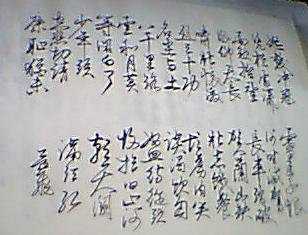 怒髮冲冠
凭栏处潇
仰天长
啸壮怀激
烈三十功
名尘与土
八千里路
云和月莫
等闲白了
少年头
空悲切靖
康耻犹未
雪臣子恨
何时灭驾
长车踏破
贺兰山缺
壮志饥餐
胡虏肉笑
谈渴饮匈
奴血待从头
收拾旧山河
朝天阙
满江红
岳飞